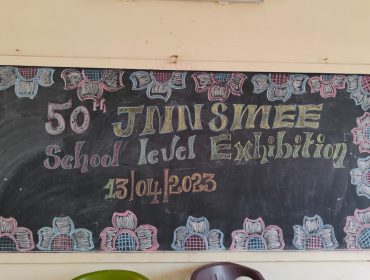 50th JNNSMEE
School level Exhibition
13/04/2023